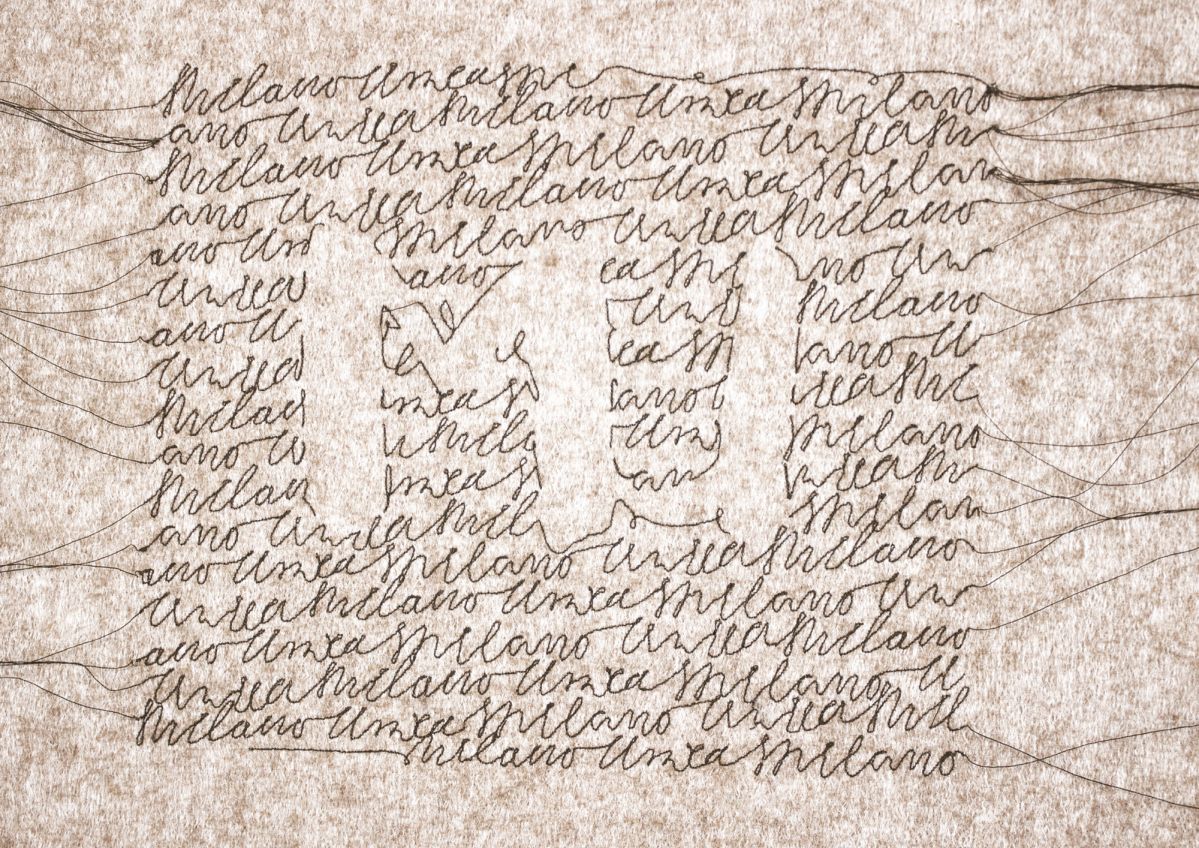 Milano Unica Mi
ano Unica Milano Unica Milano
Milano Unica Milano Unica Mi
ano Unica Milano Unica Milan
ano Un Milano Unica Milano
Unica ano ca Mi no Un
ano U Uni Milano
Unica ca Mi ano U
Milan nica M ano ica Mi
ano U Mila Uni Milano
Milan nica M an nica Mi
ano Unica Mil Milan
ano Unica Milano Unica Milano
Unica Milano Unica Milano Un
ano Unica Milano Unica Milano
Unica Milano Unica Milano U
Milano Unica Milano Unica Mil
Milano Unica Milano